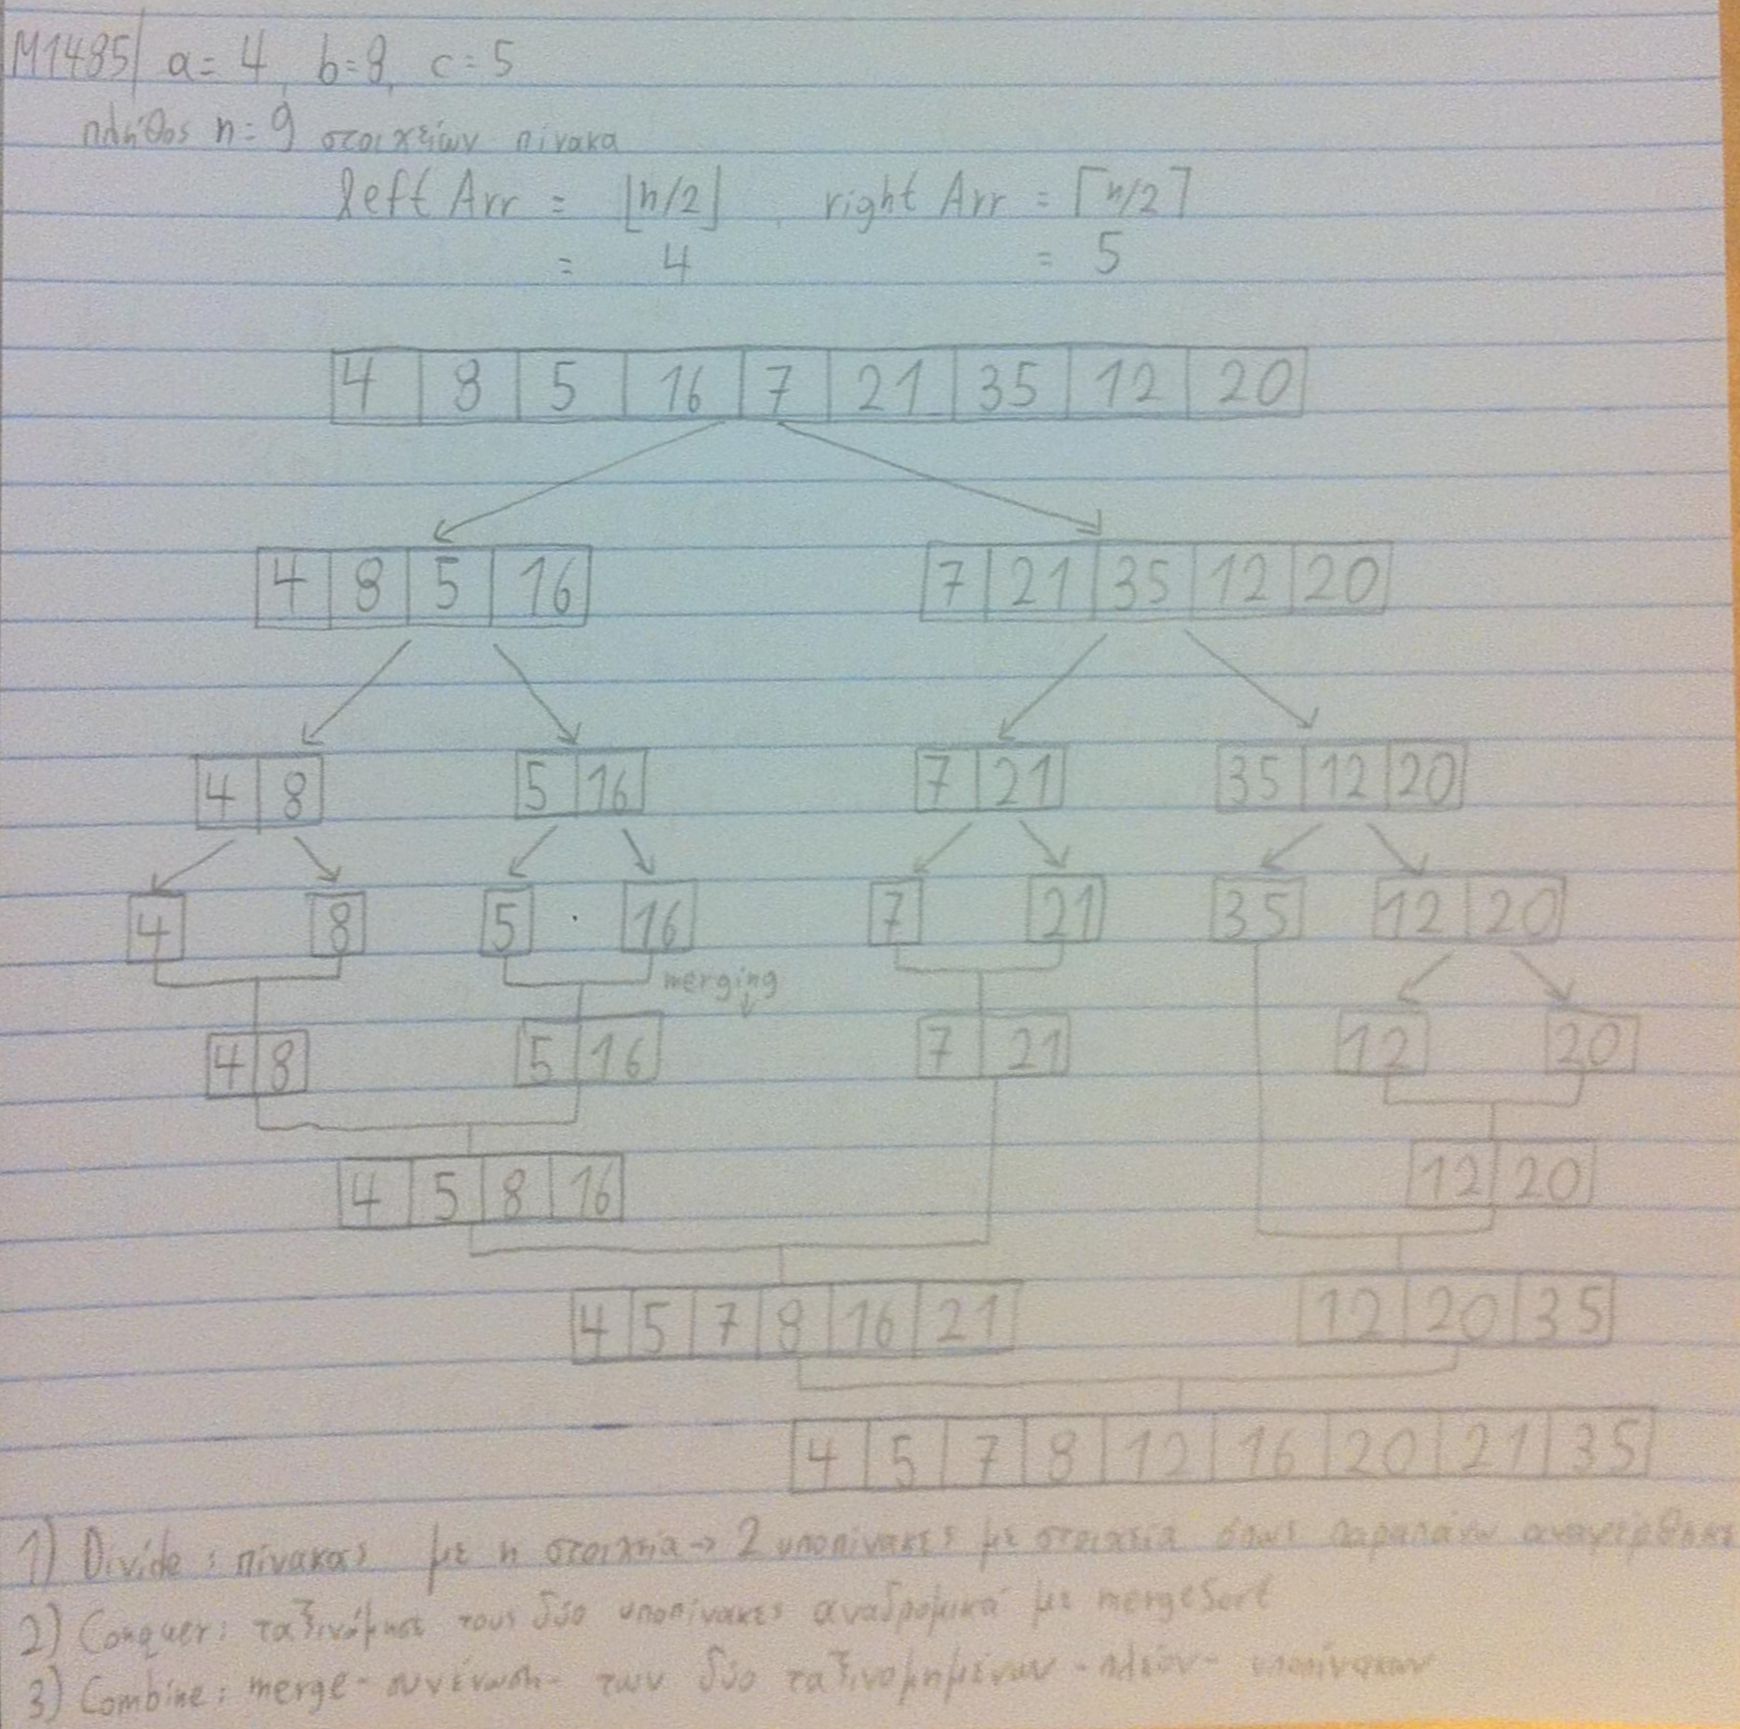 M1485 a = 4, b = 8, c = 5
πλήθος n = 9 στοιχείων πίνακα
left Arr = ⌊n/2⌋, right Arr = ⌈n/2⌉
= 4 = 5
4 8 5 16 7 21 35 12 20
4 8 5 16 7 21 35 12 20
4 8 5 16 7 21 35 12 20
4 8 5 16 7 21 35 12 20
merging
4 8 5 16 7 21 12 20
4 5 8 16 12 20
4 5 7 8 16 21 12 20 35
4 5 7 8 12 16 20 21 35
1) Divide: πίνακας με n στοιχεία → 2 υποπίνακες με στοιχεία όπως παραπάνω αναφέρθηκε
2) Conquer: ταξινόμησε τους δύο υποπίνακες αναδρομικά με mergeSort
3) Combine: merge - συνένωση - των δύο ταξινομημένων - πλέον - υποπίνακων